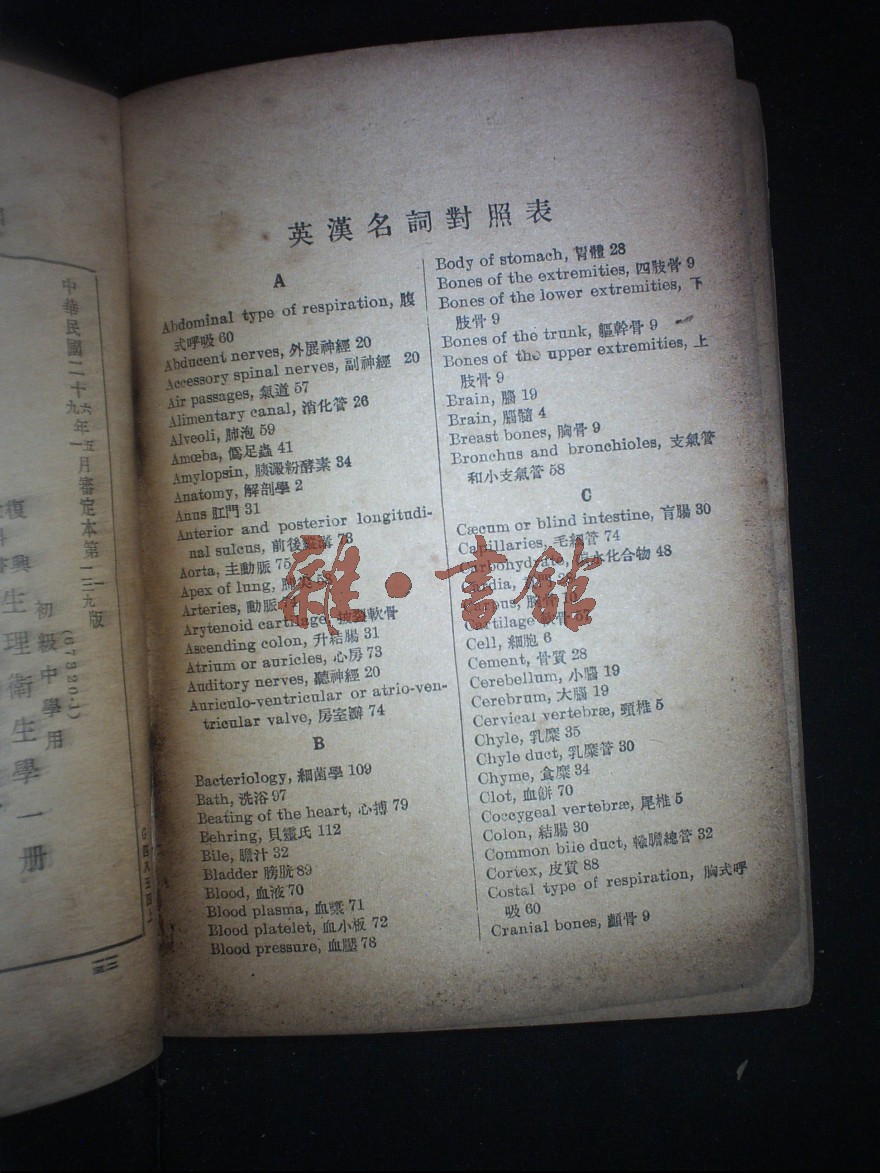 英漢名詞對照表
A
Abdominal type of respiration, 腹
式呼吸 60
Abducent nerves, 外展神經 20
Accessory spinal nerves, 副神經 20
Air passages, 氣道 57
Alimentary canal, 消化管 26
Alveoli, 肺泡 59
Amœba, 僞足蟲 41
Amylopsin, 胰澱粉酵素 34
Anatomy, 解剖學 2
Anus 肛門 31
Anterior and posterior longitudi-
nal sulcus, 前後 73
Aorta, 主動脈 75
Apex of lung, 58
Arteries, 動脈
Arytenoid cartilage, 披裂軟骨
Ascending colon, 升結腸 31
Atrium or auricles, 心房 73
Auditory nerves, 聽神經 20
Auriculo-ventricular or atrio-ven-
tricular valve, 房室瓣 74
B
Bacteriology, 細菌學 109
Bath, 洗浴 97
Beating of the heart, 心搏 79
Behring, 貝靈氏 112
Bile, 膽汁 32
Bladder 膀胱 89
Blood, 血液 70
Blood plasma, 血漿 71
Blood platelet, 血小板 72
Blood pressure, 血壓 78
Body of stomach, 胃體 28
Bones of the extremities, 四肢骨 9
Bones of the lower extremities, 下
肢骨 9
Bones of the trunk, 軀幹骨 9
Bones of the upper extremities, 上
肢骨 9
Brain, 腦 19
Brain, 腦髓 4
Breast bones, 胸骨 9
Bronchus and bronchioles, 支氣管
和小支氣管 58
C
Cæcum or blind intestine, 盲腸 30
Capillaries, 毛細管 74
Carbohydrate, 水化合物 48
Cardia,
Carpus,
Cartilage 軟骨 57
Cell, 細胞 6
Cement, 骨質 28
Cerebellum, 小腦 19
Cerebrum, 大腦 19
Cervical vertebræ, 頸椎 5
Chyle, 乳糜 35
Chyle duct, 乳糜管 30
Chyme, 食糜 34
Clot, 血餅 70
Coccygeal vertebræ, 尾椎 5
Colon, 結腸 30
Common bile duct, 輸膽總管 32
Cortex, 皮質 88
Costal type of respiration, 胸式呼
吸 60
Cranial bones, 顱骨 9
雜·書館
中華民國二十六年五月審定本第一版
九 一 一三九
復興
初級中學用
生理衛生學一册
(67320·1)
G四八五四上